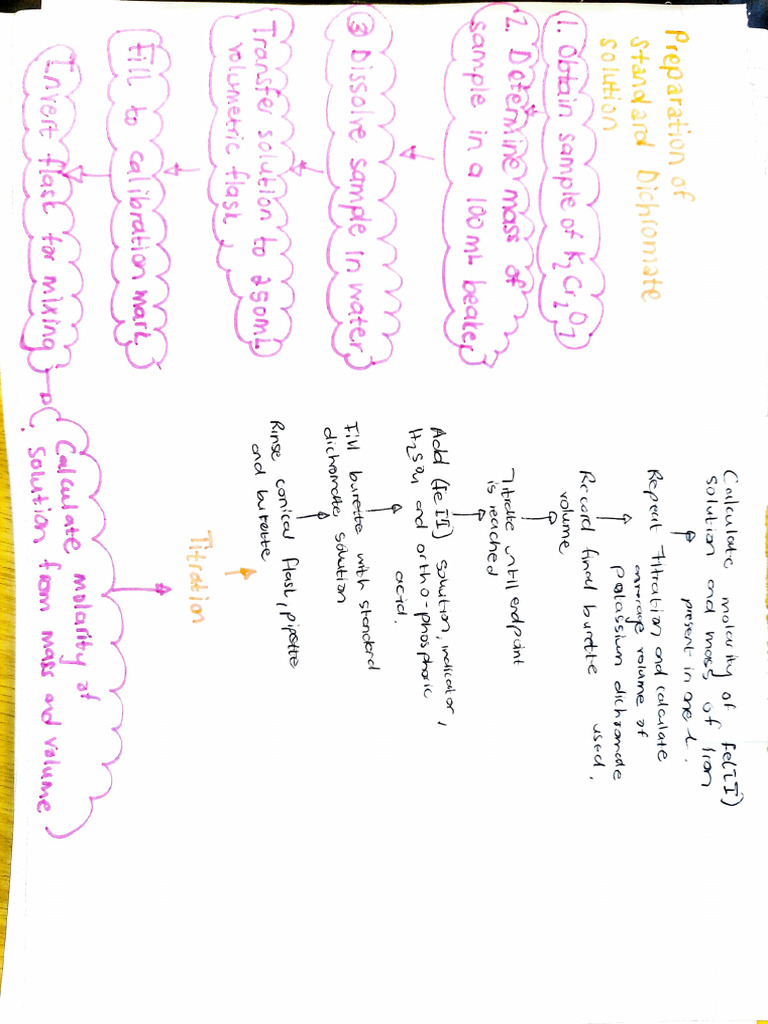 Preparation of
standard Dichromate
solution
1. Obtain sample of K2Cr2O7
2. Determine mass of
sample in a 100 mL beaker
③ Dissolve sample in water
Transfer solution to 250mL
volumetric flask,
Fill to calibration mark
Invert flask for mixing
Calculate molarity of
solution from mass and volume
Titration
Rinse conical flask, pipette
and burette
Fill burette with standard
dichromate solution
Add (Fe II) solution, indicator,
H2SO4 and ortho-phosphoric
acid.
Titrate until endpoint
is reached
Record final burette used.
volume
Repeat Titration and calculate
average volume of
potassium dichromate
Calculate molarity of Fe(II)
solution and mass of Iron
present in one L.